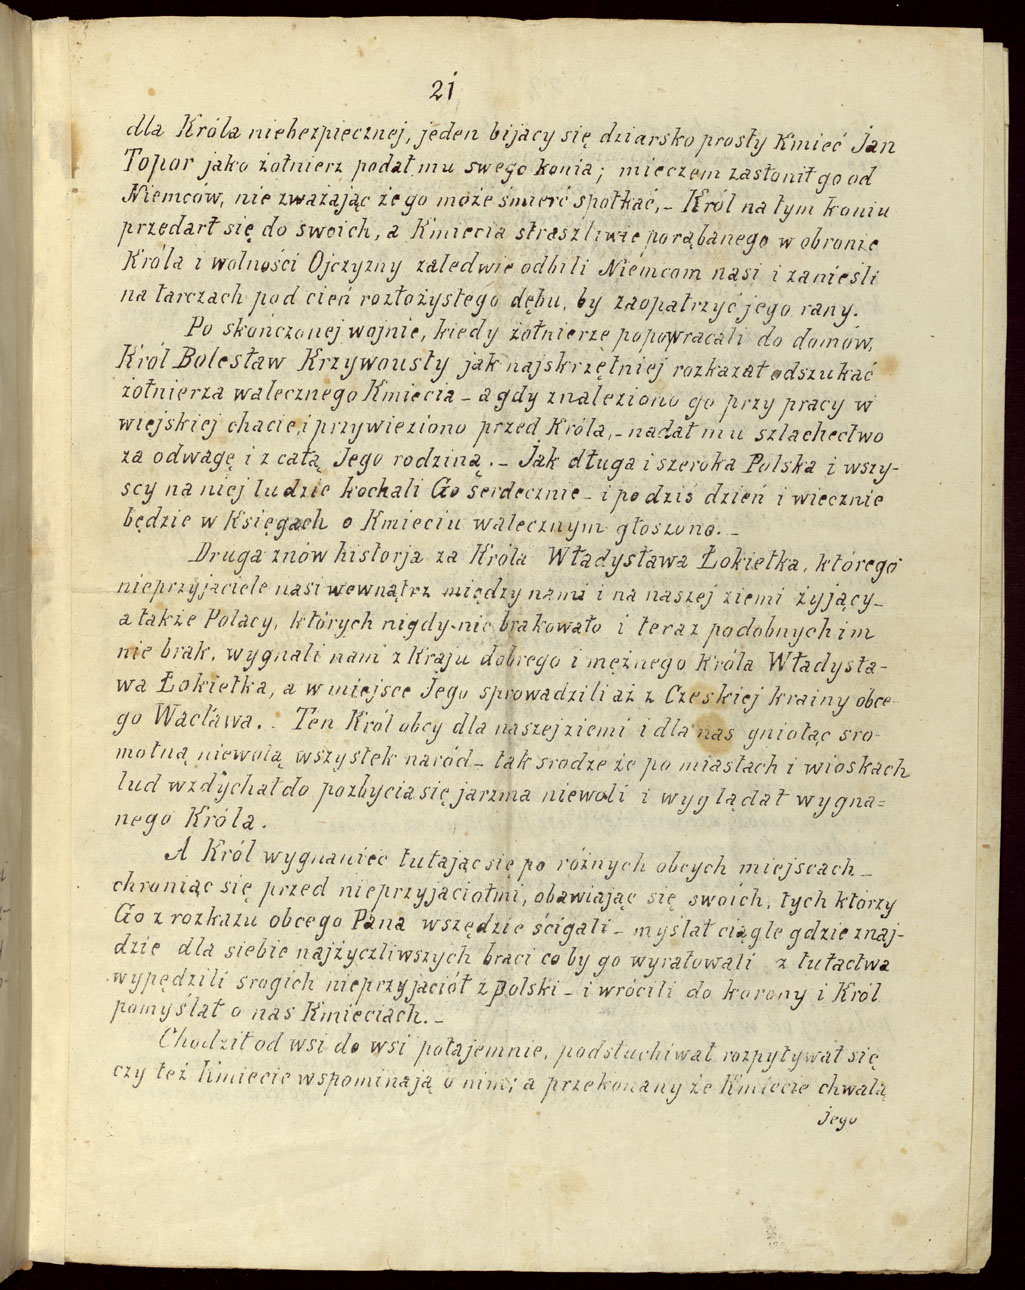 21
dla Króla niebezpiecznej, jeden bijacy się dziarsko prosty Kmieć Jan
Topor jako żołnierz podał mu swego konia; mieczem zasłonił go od
Niemców, nie zważając że go może śmierć spotkać,_ Król na tym koniu
przedarł się do swoich, a Kmiecia straszliwie porąbanego w obronie
Króla i wolności Ojczyzny zaledwie odbili Niemcom nasi i zanieśli
na tarczach pod cień rozłożystego dębu, by zaopatrzyć jego rany.
Po skończonej wojnie, kiedy żołnierze popowracali do domów,
Król Bolesław Krzywousty jak najskrzętniej rozkazał odszukać
żołnierza walecznego Kmiecia _ a gdy znaleziono go przy pracy w
wiejskiej chacie, i przywieziono przed Króla,_ nadał mu szlachectwo
za odwagę i z całą Jego rodziną._ Jak długa i szeroka Polska i wszy-
scy na niej ludzie kochali Go serdecznie _ i po dziś dzień i wiecznie
będzie w Księgach o Kmieciu walecznym głoszono._
Druga znów historja za Króla Władysława Łokietka, którego
nieprzyjaciele nasi wewnątrz między nami i na naszej ziemi żyjący_
a także Polacy, których nigdy nie brakowało i teraz podobnych im
nie brak, wygnali nam z Kraju dobrego i mężnego Króla Władysła-
wa Łokietka, a w miejsce Jego sprowadzili aż z Czeskiej krainy obce-
go Wacława.. Ten Król obcy dla naszej ziemi i dla nas gniotąc sro-
motną niewolą wszystek naród _ tak srodze że po miastach i wioskach
lud wzdychał do pozbycia się jarzma niewoli i wyglądał wygna=
nego Króla.
A Król wygnaniec tułając się po różnych obcych miejscach _
chroniąc się przed nieprzyjaciołmi, obawiając się swoich, tych ktorzy
Go z rozkazu obcego Pana wszędzie ścigali _ myślał ciągle gdzie znaj-
dzie dla siebie najżyczliwszych braci co by go wyratowali z tułactwa
wypędzili srogich nieprzyjaciół z polski _ i wrócili do korony i Król
pomyślał o nas Kmieciach._
Chodził od wsi do wsi potajemnie, podsłuchiwał rozpytywał się
czy też Kmiecie wspominają o nim; a przekonany że Kmiecie chwalą
Jego